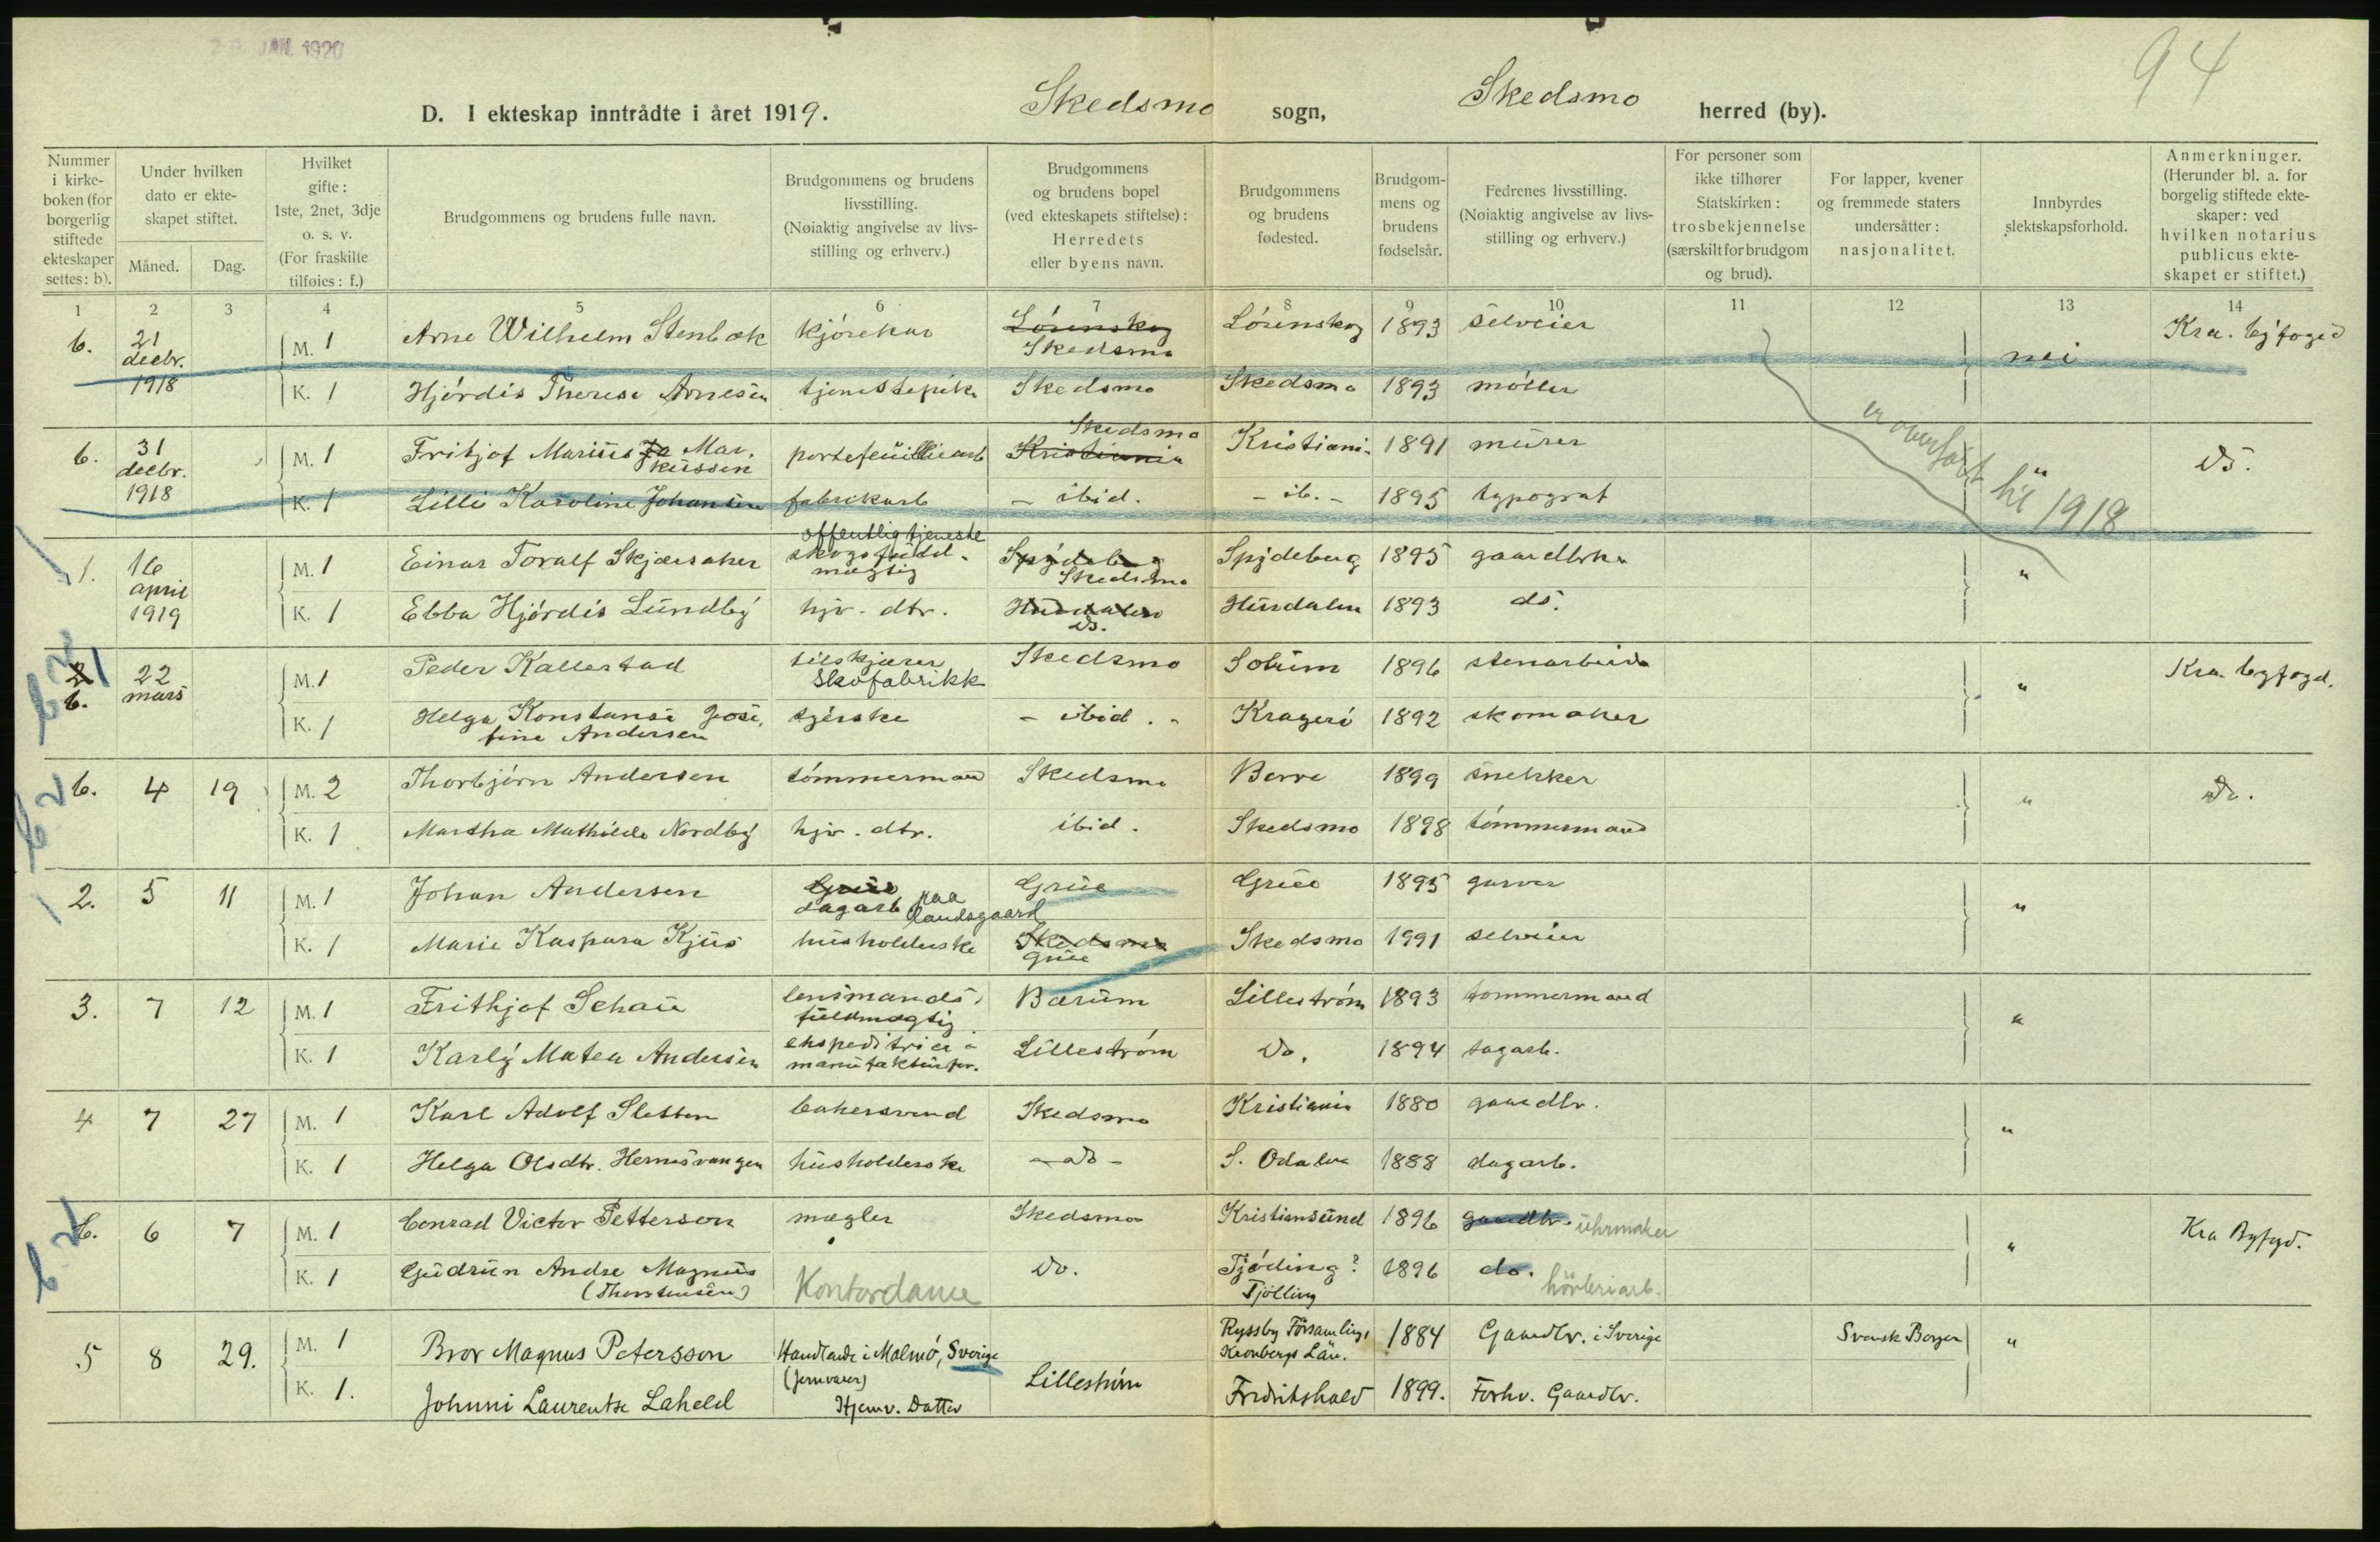 JAN. 1920
94
D. I ekteskap inntrådte i året 1919. Skedsmo sogn, Skedsmo herred (by).
Nummer i kirkeboken (for borgerlig stiftede ekteskaper settes: b).
Under hvilken dato er ekteskapet stiftet.
Måned. Dag.
Hvilket gifte: 1ste, 2net, 3dje o. s. v. (For fraskilte tilføies: f.)
Brudgommens og brudens fulle navn.
Brudgommens og brudens livsstilling. (Nøiaktig angivelse av livsstilling og erhverv.)
Brudgommens og brudens bopel (ved ekteskapets stiftelse): Herredets eller byens navn.
Brudgommens og brudens fødested.
Brudgommens og brudens fødselsår.
Fedrenes livsstilling. (Nøiaktig angivelse av livsstilling og erhverv.)
For personer som ikke tilhører Statskirken: trosbekjennelse (særskilt for brudgom og brud).
For lapper, kvener og fremmede staters undersåtter: nasjonalitet.
Innbyrdes slektskapsforhold.
Anmerkninger. (Herunder bl. a. for borgelig stiftede ekteskaper: ved hvilken notarius publicus ekteskapet er stiftet.)
1 2 3 4 5 6 7 8 9 10 11 12 13 14
b. 21 decbr. 1918 M. 1 Arne Wilhelm Stenbæk kjørekar Lørenskog Skedsmo Lørenskog 1893 selveier nei Kra. byfoged
K. 1 Hjørdis Therese Arnesen tjenestepike Skedsmo Skedsmo 1893 møller
b. 31 decbr. 1918 M. 1 Fritjof Marius Ja Markussen portefeuillearb Kristiania Skedsmo Kristiani- 1891 murer " Do.
K. 1 Lilli Karoline Johansen fabrikarb - ibid. - ib. - 1895 typograf
er overført til 1918
1. 16 april 1919 M. 1 Einar Toralf Skjærsaker offentlig tjeneste skogsfuldmægtig Spydeberg Skedsmo Spydeberg 1895 gaardbrk. "
K. 1 Ebba Hjørdis Lundby hjv. dtr. Hurdalen Do. Hurdalen 1893 do.
b 2
2 b. 22 mars M. 1 Peder Kallestad tilskjærer Skofabrikk Skedsmo Solum 1896 stenarbeider " Kra. byfogd.
K. 1 Helga Konstanse Josefine Andersen syerske - ibid. - Kragerø 1892 skomaker
b 2
b. 4 19 M. 2 Thorbjørn Andersen tømmermand Skedsmo Borre 1899 snekker " Do.
K. 1 Martha Mathilde Nordby hjv. dtr. ibid. Skedsmo 1898 tømmermand
2. 5 11 M. 1 Johan Andersen Grue dagarb paa landsgaard Grue Grue 1895 garver "
K. 1 Marie Kaspara Kjus husholderske Skedsmo Grue Skedsmo 1991 selveier
3. 7 12 M. 1 Frithjof Schau lensmandsfuldmægtig Bærum Lillestrøm 1893 tømmermand "
K. 1 Karly Matea Andersen ekspeditrice manufakturfor. Lillestrøm Do. 1894 sagarb.
4 7 27 M. 1 Karl Adolf Sletten bakersvend Skedsmo Kristiania 1880 gaardbr. "
K. 1 Helga Olsdtr. Hernesvangen husholderske - Do - S. Odalen 1888 dagarb.
b 2
b. 6 7 M. 1 Conrad Victor Petterson mægler Skedsmo Kristiansund 1896 gaardbr. uhrmaker " Kra Byfgd.
K. 1 Gudrun Andre Magnus (Thorstensen) Kontordame Do. Tjøding? Tjølling 1896 do. høvleriarb.
5 8 29. M. 1 Bror Magnus Petersson Handlande i Malmö, Sverige (jernvarer) Ryssby Församling, Kronbergs Län. 1884 Gaardbr. i Sverige Svensk Borger "
K. 1. Johnni Laurentse Laheld Hjemv. Datter Lillestrøm Fredrikshald 1899. Forhv. Gaardbr.